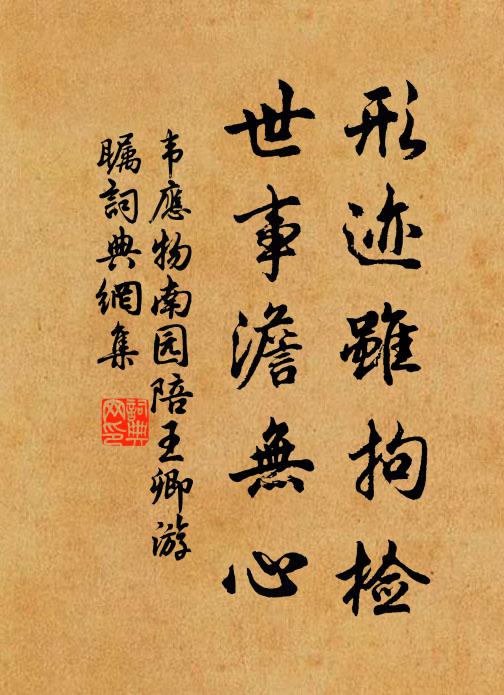 形迹雖拘检
世事澹無心
韦應物南园陪王卿游
瞩詞典網集
詞典網印